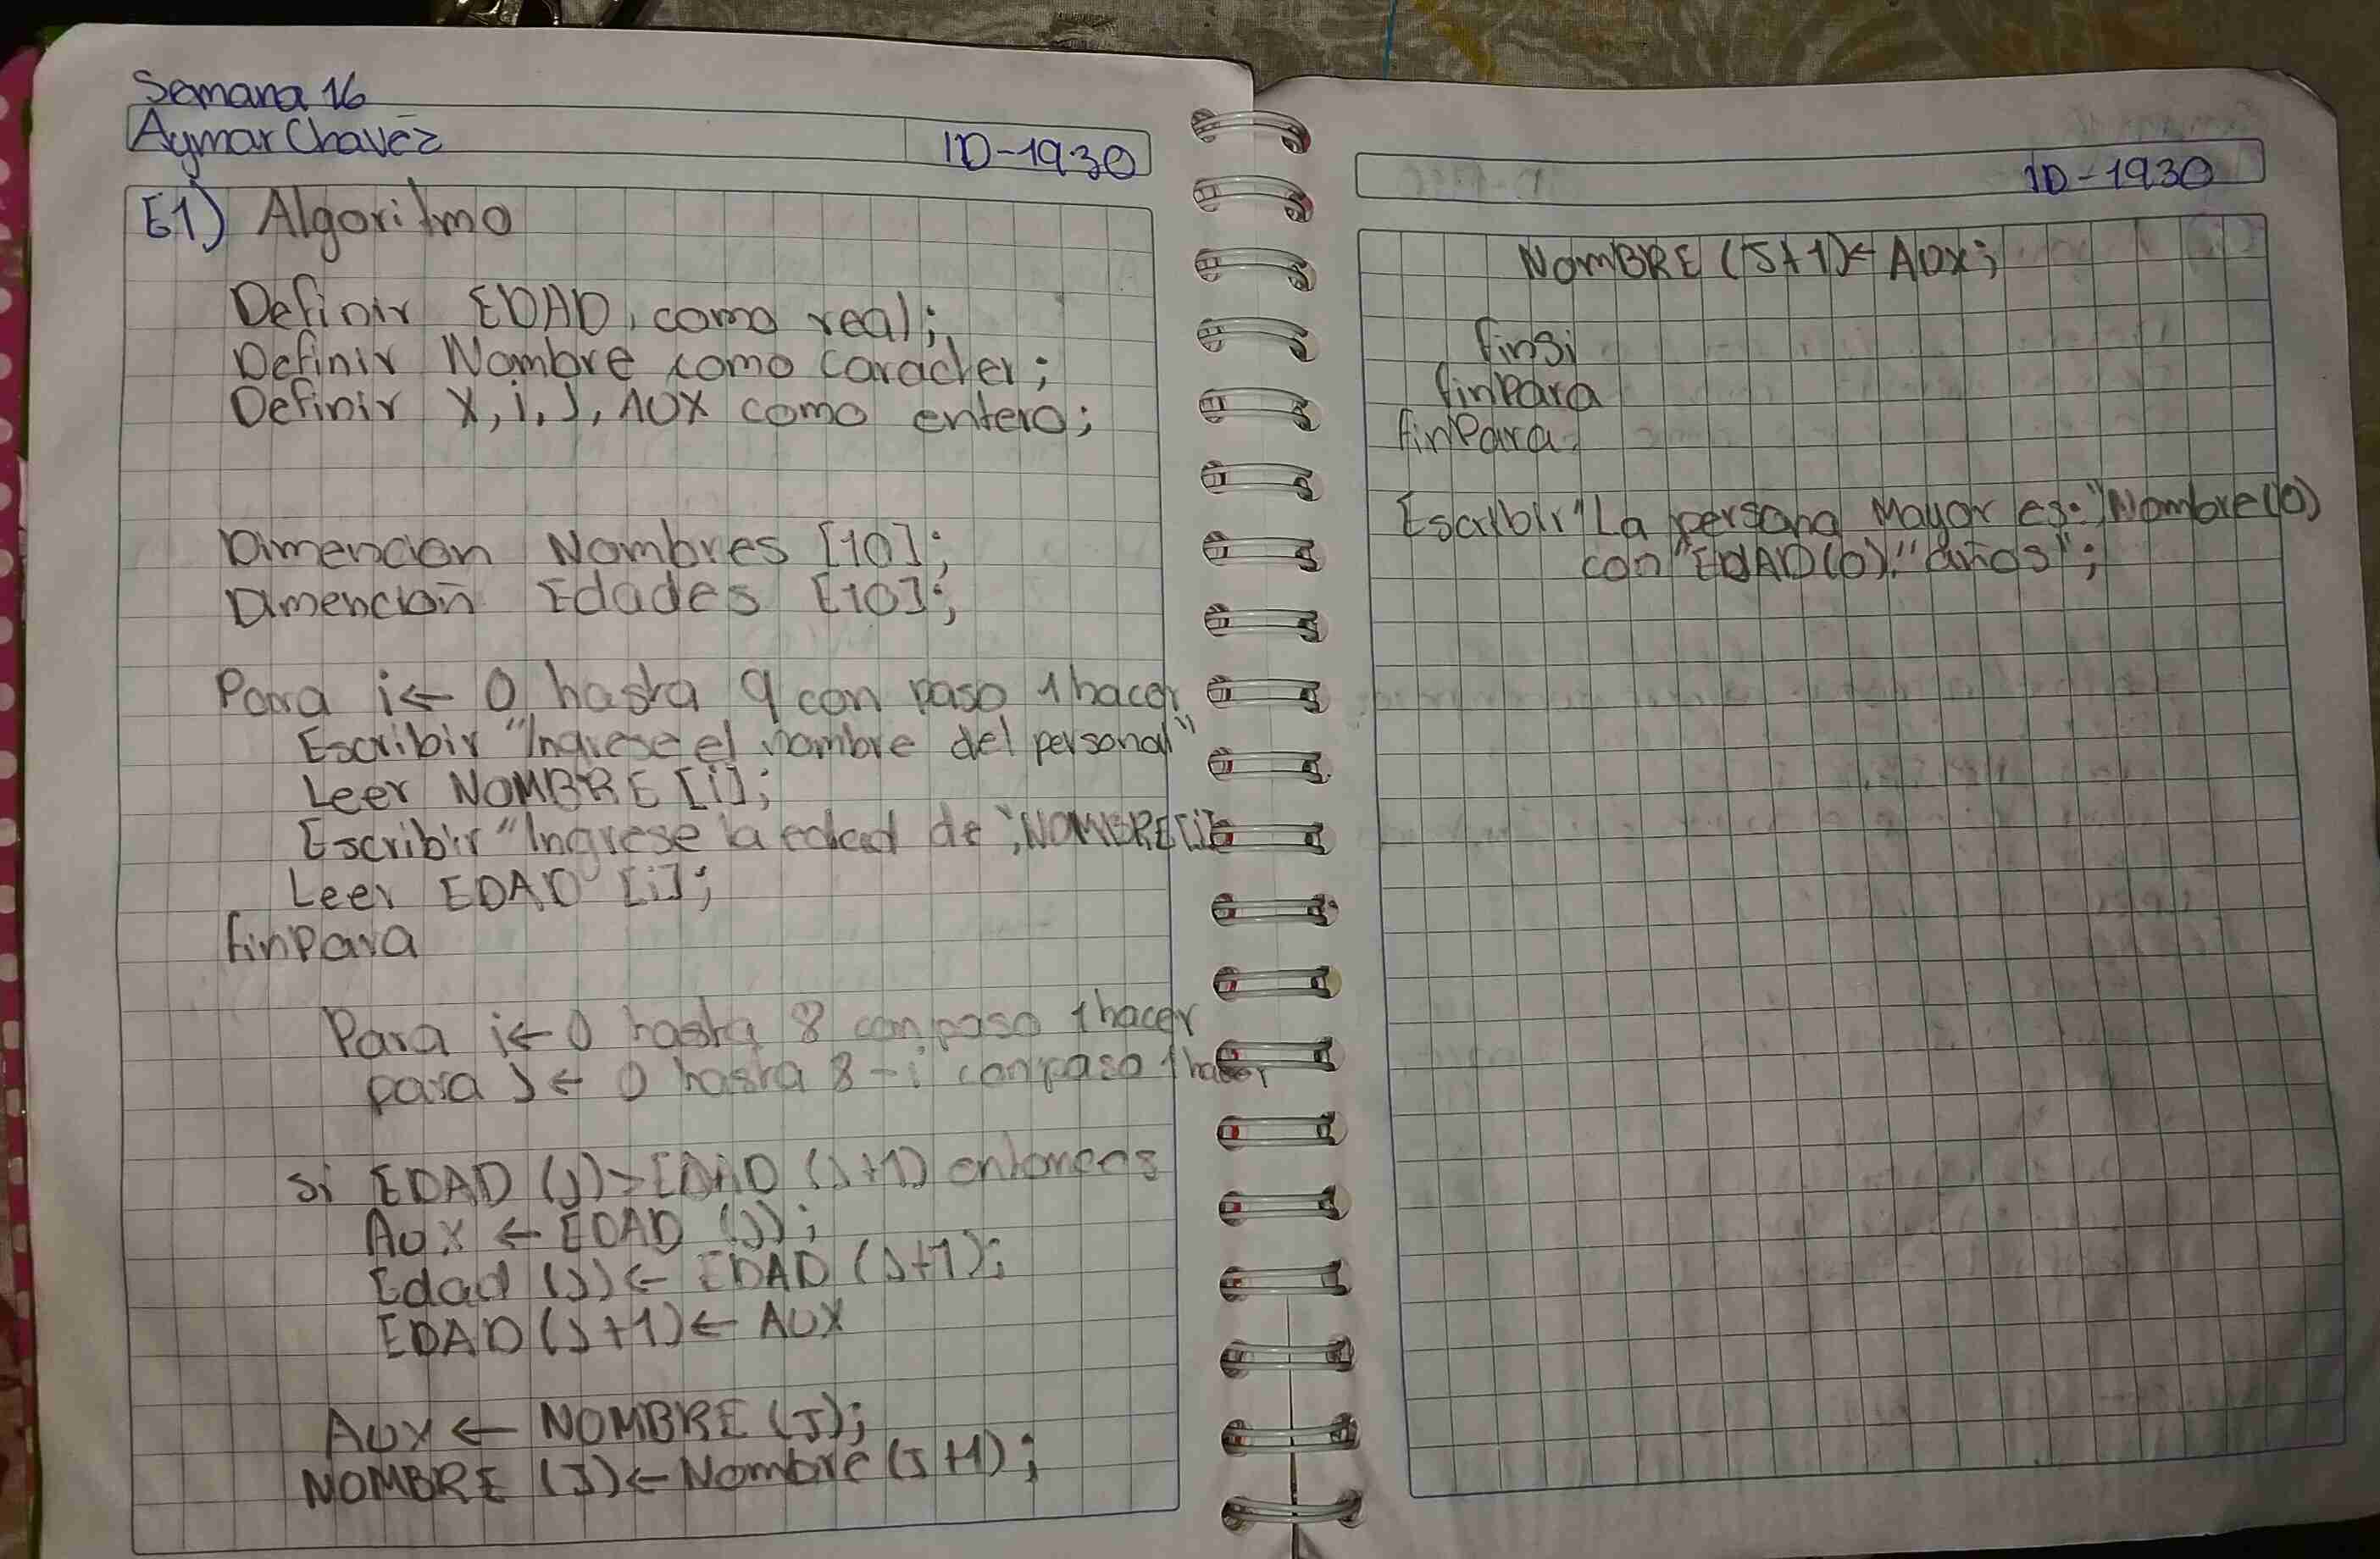 Semana 16
Aymar Chavez
ID-1930
E1) Algoritmo
Definir EDAD, como real;
Definir Nombre como caracter;
Definir X, i, J, AUX como entero;
Dimencion Nombres [10];
Dimencion Edades [10];
Para i← 0 hasta 9 con paso 1 hacer
Escribir "Ingrese el nombre del personal"
Leer NOMBRE [i];
Escribir "Ingrese la edad de", NOMBRE [i]
Leer EDAD [i];
finPara
Para i← 0 hasta 8 con paso 1 hacer
para J ← 0 hasta 8-i con paso 1 hacer
Si EDAD (J)>EDAD (J+1) entonces
AUX ← EDAD (J);
Edad (J)← EDAD (J+1);
EDAD (J+1)← AUX
AUX ← NOMBRE (J);
NOMBRE (J)← Nombre (J+1);
ID-1930
NOMBRE (J+1)← AUX;
finsi
finPara
finPara
Escribir "La persona Mayor es:", Nombre(0)
con "EDAD(0)," años";